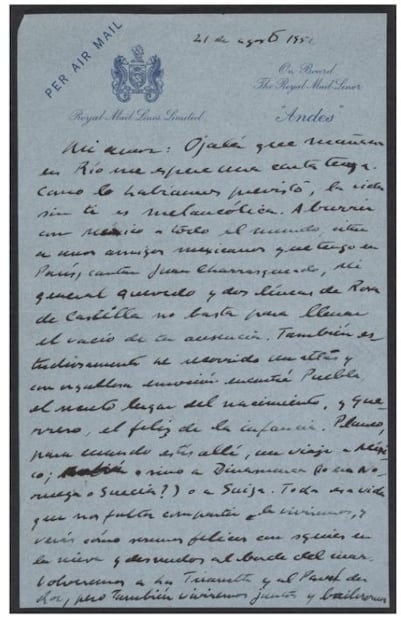 PER AIR MAIL
21 de agosto 195
Royal Mail Lines Limited
On Board
The Royal Mail Liner
"Andes"
Mi amor: Ojalá que mañana
en Río me espere una carta tuya.
Como lo habíamos previsto, la vida
sin ti es melancólica. Aburrir
con México a todo el mundo, citar
a unos amigos mexicanos que tengo en
París, cantar Juan Charrasqueado, Mi
general Quevedo y dos líneas de Rosa
de Castilla no basta para llenar
el vacío de tu ausencia. También es
tudiosamente he recorrido un atlas y
con orgullosa emoción encontré Puebla,
el lugar del nacimiento, y Gue
rrero, el feliz de la infancia. Planeo,
para cuando estés allí, un viaje a Méxi
co; o sino a Dinamarca (o a No
ruega o Suecia?) o a Suiza. Toda esa vida
que nos falta compartir la viviremos, y
verás cómo seremos felices con squies en
la nieve y desnudos al borde del mar.
Volveremos a La y al Pavé du
Roi, pero también viviremos juntos y bailaremos